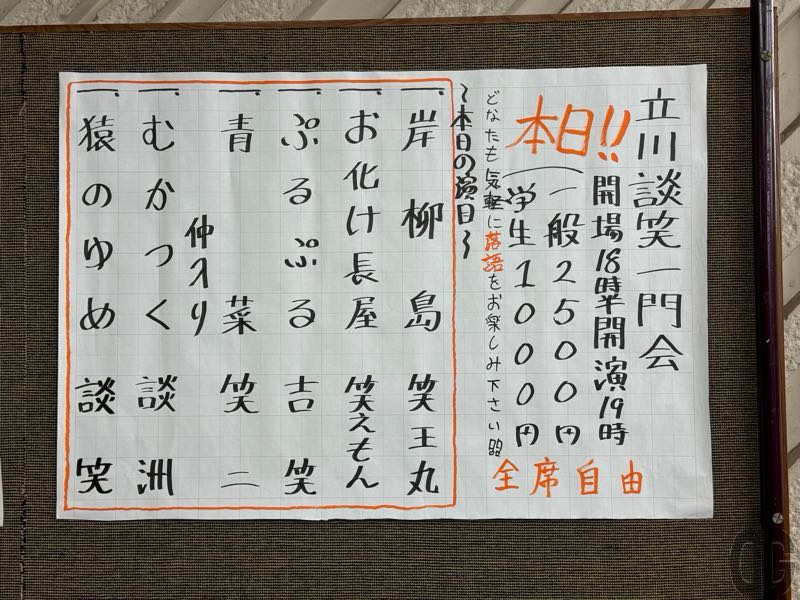 立川談笑一門会
本日!!
開場18時半開演19時
一般2500円
学生1000円
全席自由
どなたも気軽に落語をお楽しみ下さい
〜本日の演目〜
一、岸柳島 笑王丸
一、お化け長屋 笑えもん
一、ぷるぷる 吉笑
一、青菜 笑二
仲入り
一、むかつく 談洲
一、猿のゆめ 談笑